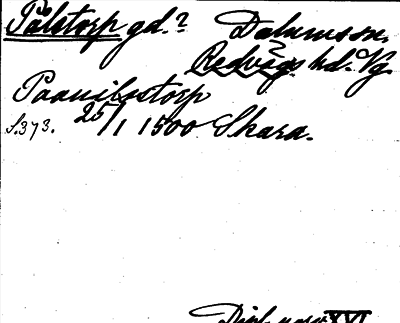 Pålstorp gd.? Dalums sn.
Redvägs hd. Vg.
Paauilstorp
S.373. 25/1 1500 Skara.
Dipl. norv. XVI